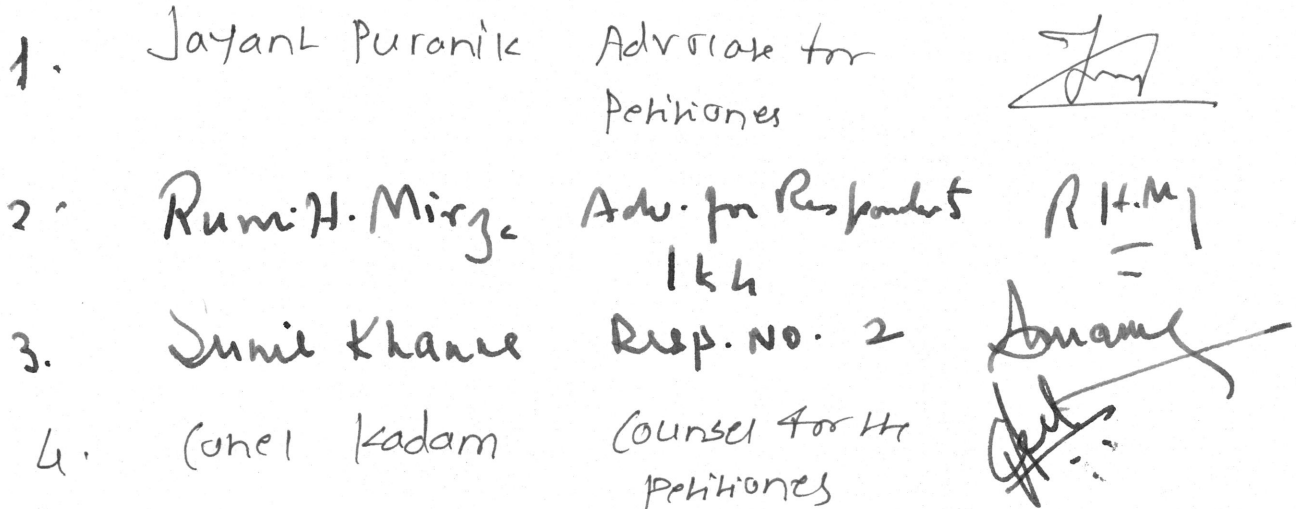 1. Jayant Puranik Advocate for
Petitioners
2. Rumi H. Mirza Adv. for Respondents R H.M
1 & 4
3. Sunil Khanna Resp. No. 2
4. Conel Kadam Counsel for the
petitioners